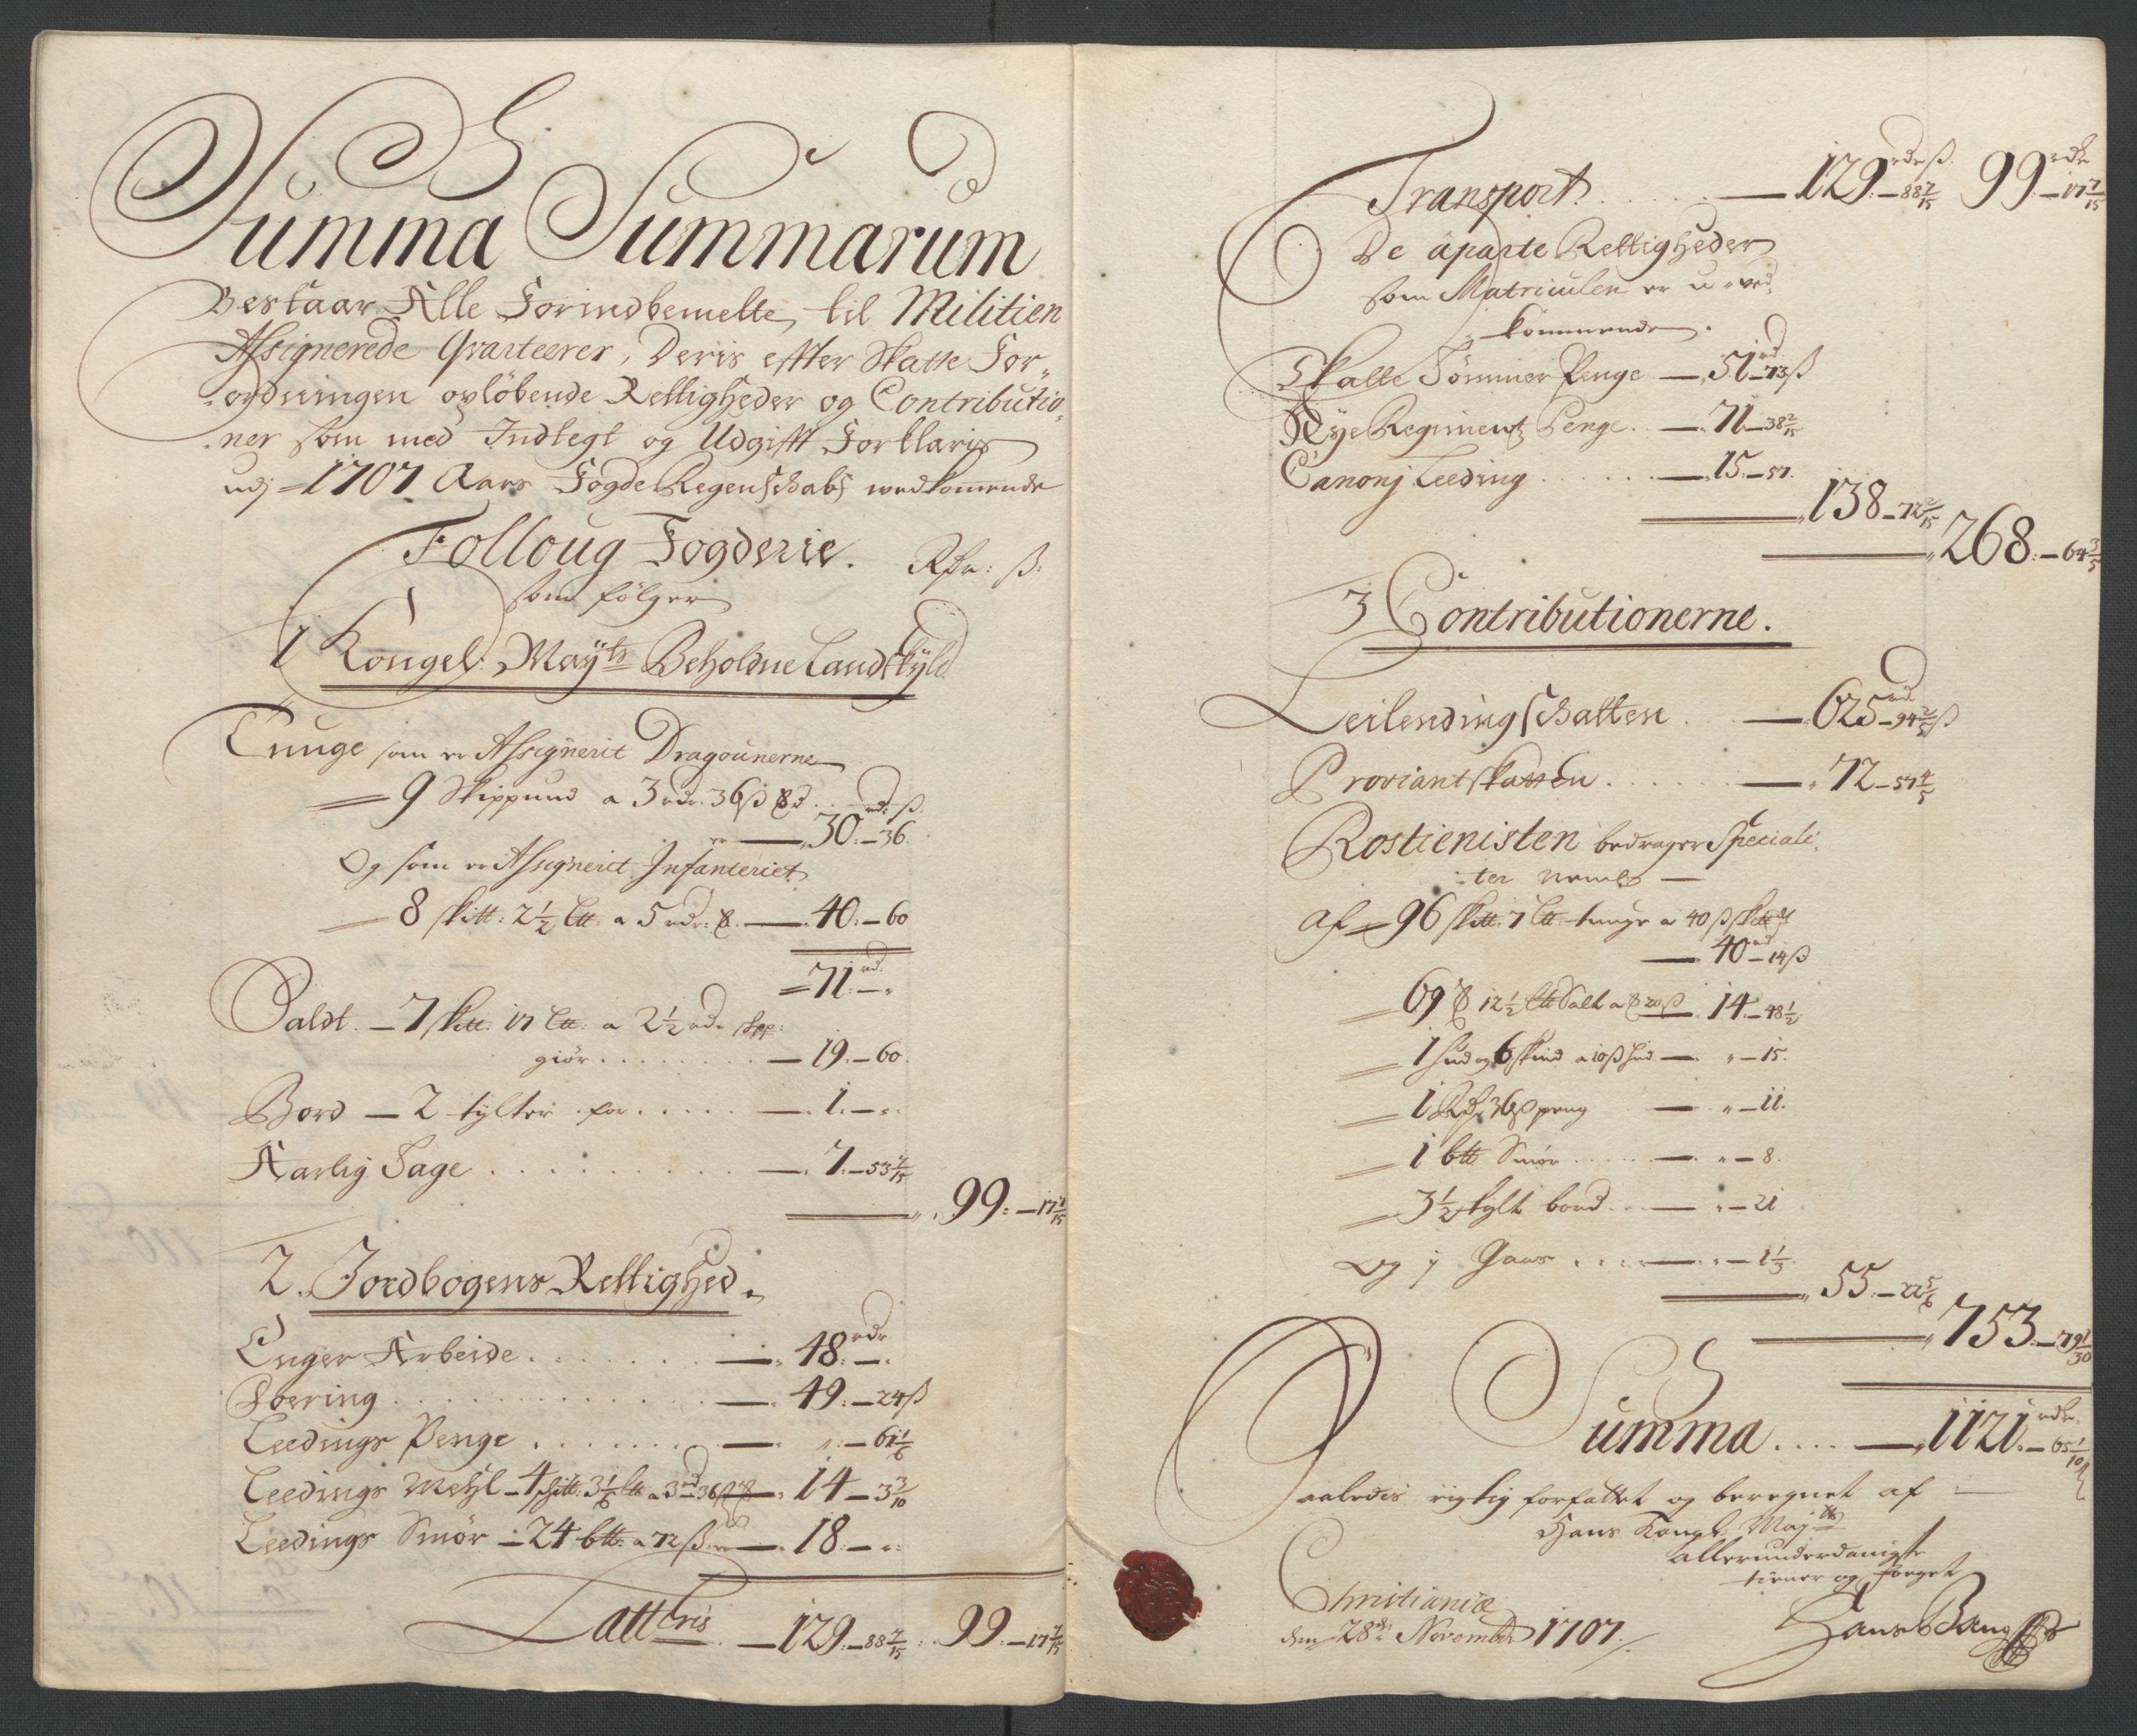 Summa Summarum
Bestaar Alle Forindbemelte, til Militien
Assignerede Qvarteerer, Deris effter Skatte For-
ordningen opløbende Rettigheder og Contributio-
ner som med Indtegt og Udgifft Forklaris
udj 1707 Aars Fogde Regenschabs vedkommende
Folloug Fogderie. Rdr: ß:
som følger
1 Kongel: Mayts Beholdne Landskyld
Tunge som er Assignerit Dragounerne
9 Skippund a 3 rdr. 36 ß rd. ß.
30. - 36.
Og som er Assignerit Infanteriet
8 sk℔: 2½ L℔ a 5 rdr: 40. - 60
71 rd. - „
Saldt. - 7 sk℔. 17 L℔: a 2½ rdr
giör . . . . . 19. - 60.
Bord - 2 tylter for . . . . 1. - „
Aarlig Sage . . . . . 7. - 53 7/15
99: - 17 7/15
2. Jordbogens Rettighed.
Enger Arbeide . . . . 48 rdr. - „
Foering . . . . . 49. - 24 ß
Leedings Penge . . . . „: - 61 1/6
Leedings Mehl - 4 sk℔: 3 1/6 L℔ a 3 rd 36 ß 14 - 3 3/10
Leedings Smør - 24 b℔: a 72 ß er 18. - „
Latteris - 129: - 88 7/15: 99. - 17 7/15
Transport . . . . 129 rdr ß. - 88 7/15 99 rdr - 17 7/15
De aparte Rettigheder
som Matriculen er u-ved-
kommende.
Skatte Tømmer Penge - 51 rd - 73 ß
Nye Regiments Penge . . - 71 - 38 2/15
Canonj Leeding . . . . - 15. - 57.
138 - 72 2/15
268. - 64 3/5
3 Contributionerne.
Leilendingschatten . . - 625 rd - 94 2/5 ß
Proviantskatten . . . . - 72 - 57 4/5
Rostienisten bedrager Speciali-
ter nemlig -
Af 96 sk℔. 7 L℔. tunge a 40 ß
40 rd - 14 ß
69 12½ L℔ Salt a 20 ß 14. - 48½
1 hud og 6 skind a 10 ß hud - „ - 15.
1 Rdr 36 ß peng - „ - 11.
1 b℔ Smør . . . . - „ - 8.
3½ tylt bord . . . - „ - 21
Og j Gaas . . . . „ - 1 1/3
55. - 22 5/6
753. - 79 1/30
Summa . . . . 1121 rdr. - 65 1/10 ß
Saaledis rigtig forfattet og beregnet af
Hans Kongl. Mayts
allerunderdanigste
tiener og foeget
Christiania
den 28de November 1707.
Hans Bang